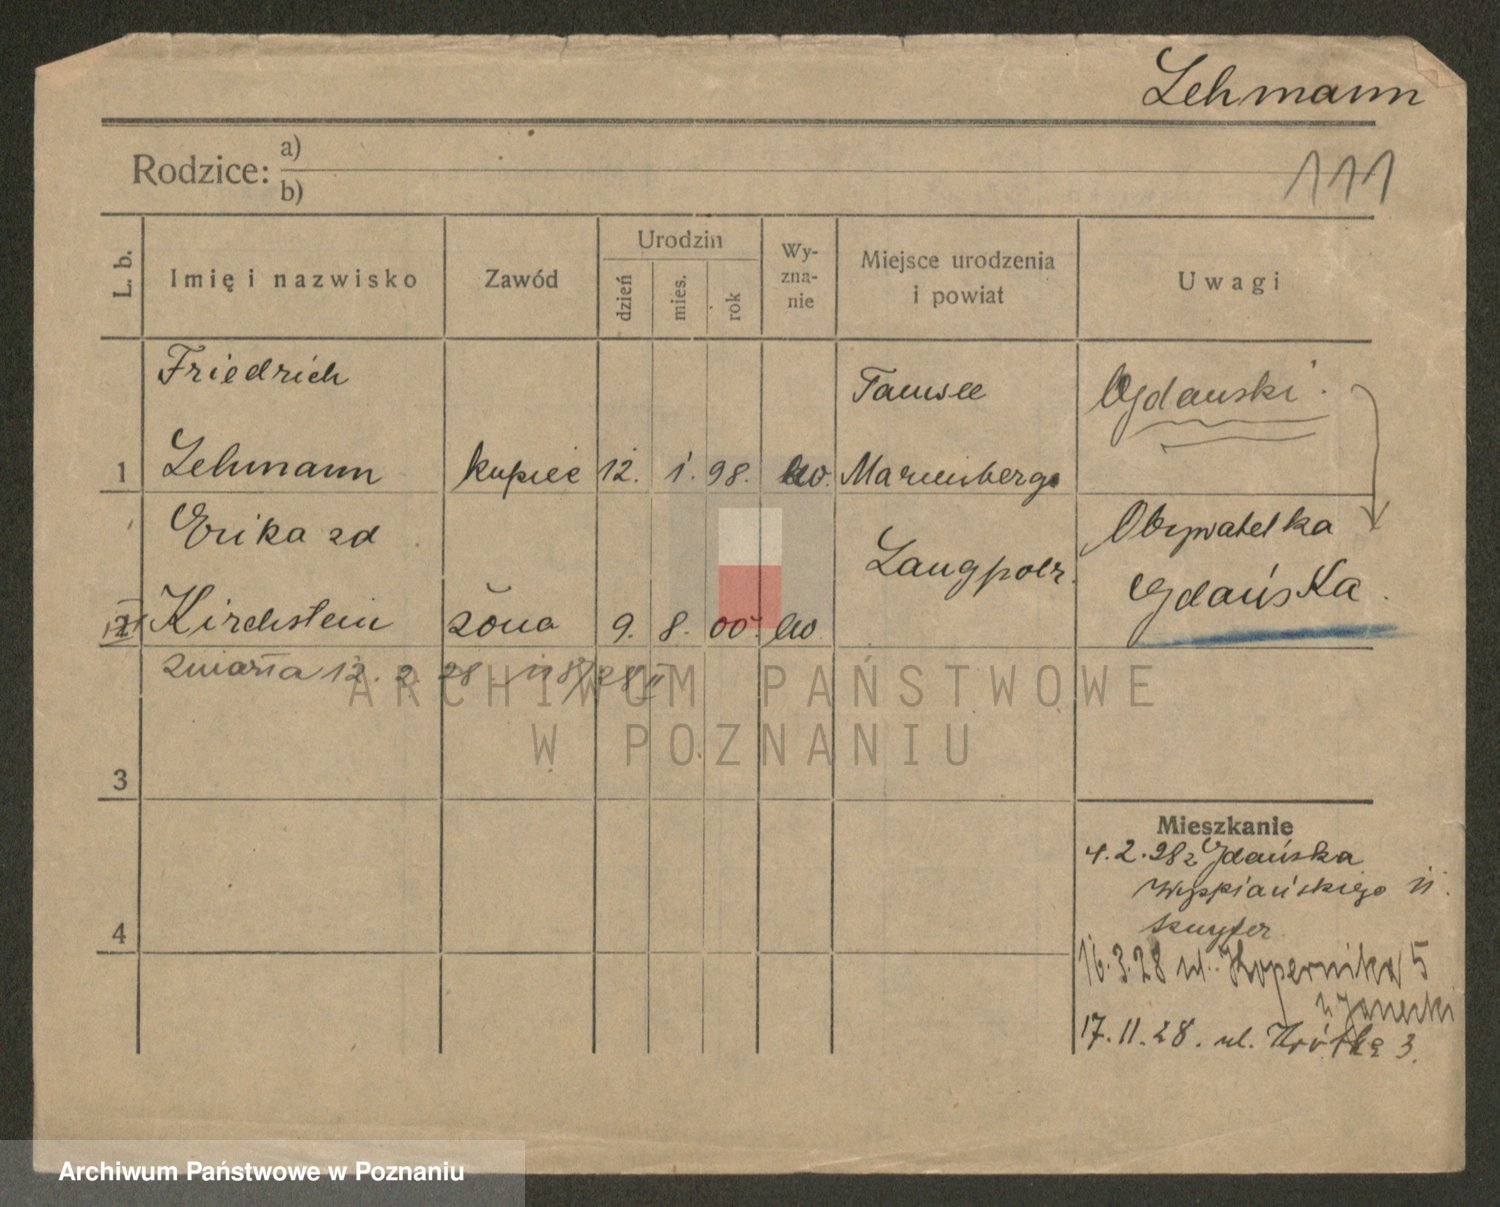 Lehmann
Rodzice: a)
b)
111
L. b.
Imię i nazwisko
Zawód
Urodzin
dzień
mies.
rok
Wy-
zna-
nie
Miejsce urodzenia
i powiat
Uwagi
Friedrich
1 Lehmann kupiec 12. 1. 98. ew.
Ob Gdański.
Erika zd
2 Kirchstein żona 9. 8. 00. ew
Obywatelka
Gdańska.
zmarła 12. 2. 28
ARCHIWUM PAŃSTWOWE
W POZNANIU
3
4
Mieszkanie
4. 2. 28 z Gdańska
Wyspiańskiego 11.
16. 3. 28 ul. Kopernika 5
u Janecki
17. 11. 28. ul. Krótka 3.
Archiwum Państwowe w Poznaniu